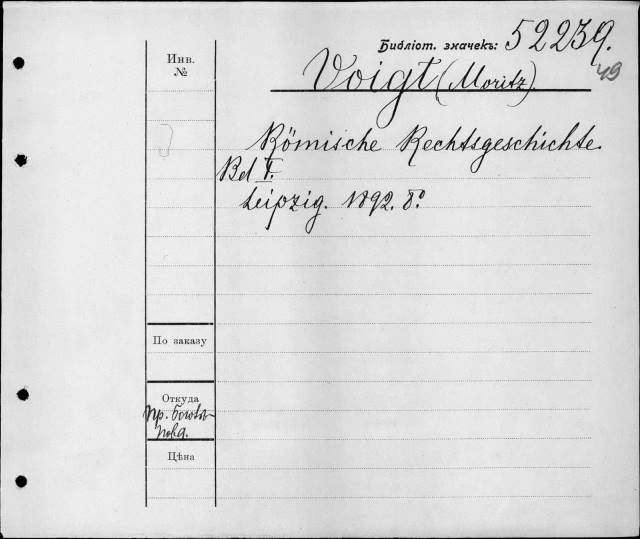 Библіот. значекъ: 52239.
49
Инв.
№
Voigt (Moritz).
Römische Rechtsgeschichte.
Bd I.
Leipzig. 1892. 8º
По заказу
Откуда
Пр. Боголѣ-
пова.
Цѣна